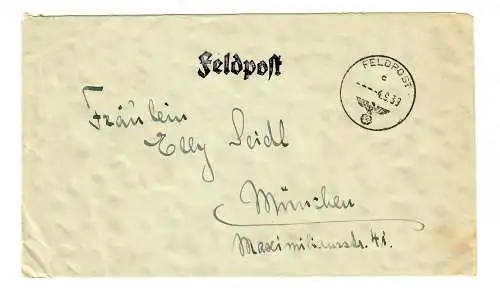 Feldpost
FELDPOST
c
---4.9.39
Fräulein
Elly Seidl
München
Maximiliansstr. 41.